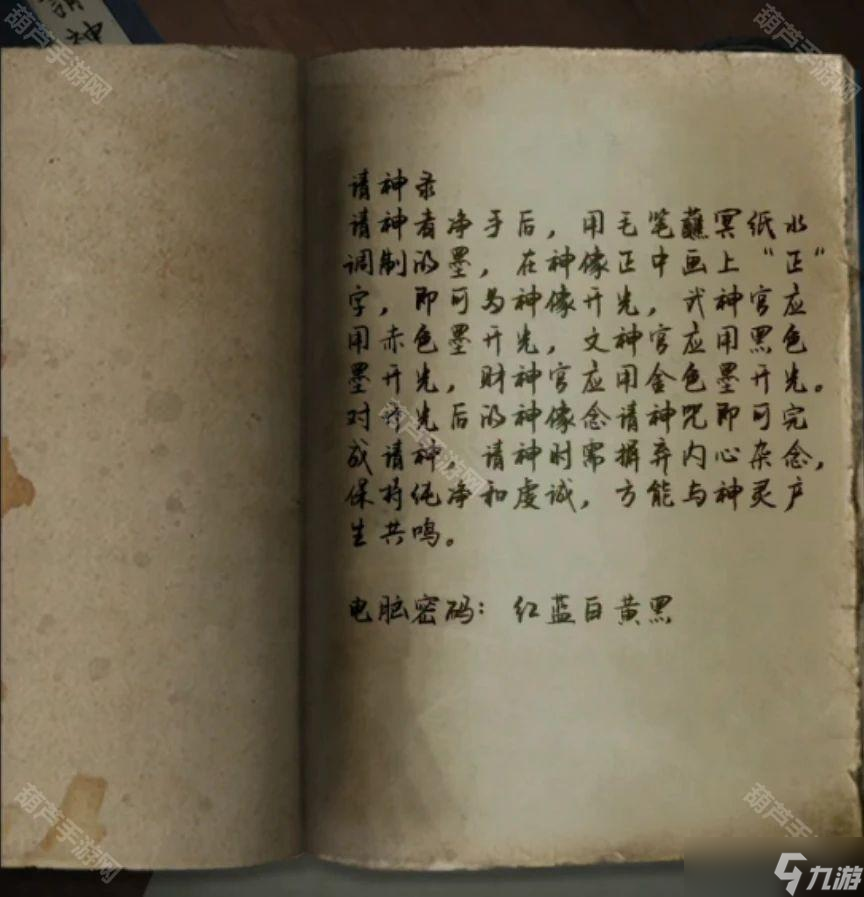 請神
葫芦手游网
葫芦手游网
请神录
请神者净手后，用毛笔蘸冥纸水
调制的墨，在神像正中画上“正”
字，即可为神像开光，武神官应
用赤色墨开光，文神官应用黑色
墨开光，财神官应用金色墨开光。
对开光后的神像念请神咒即可完
成请神，请神时需摒弃内心杂念，
保持纯净和虔诚，方能与神灵产
生共鸣。
葫芦手游网
电脑密码：红蓝白黄黑
葫芦手游网
葫芦手
九游